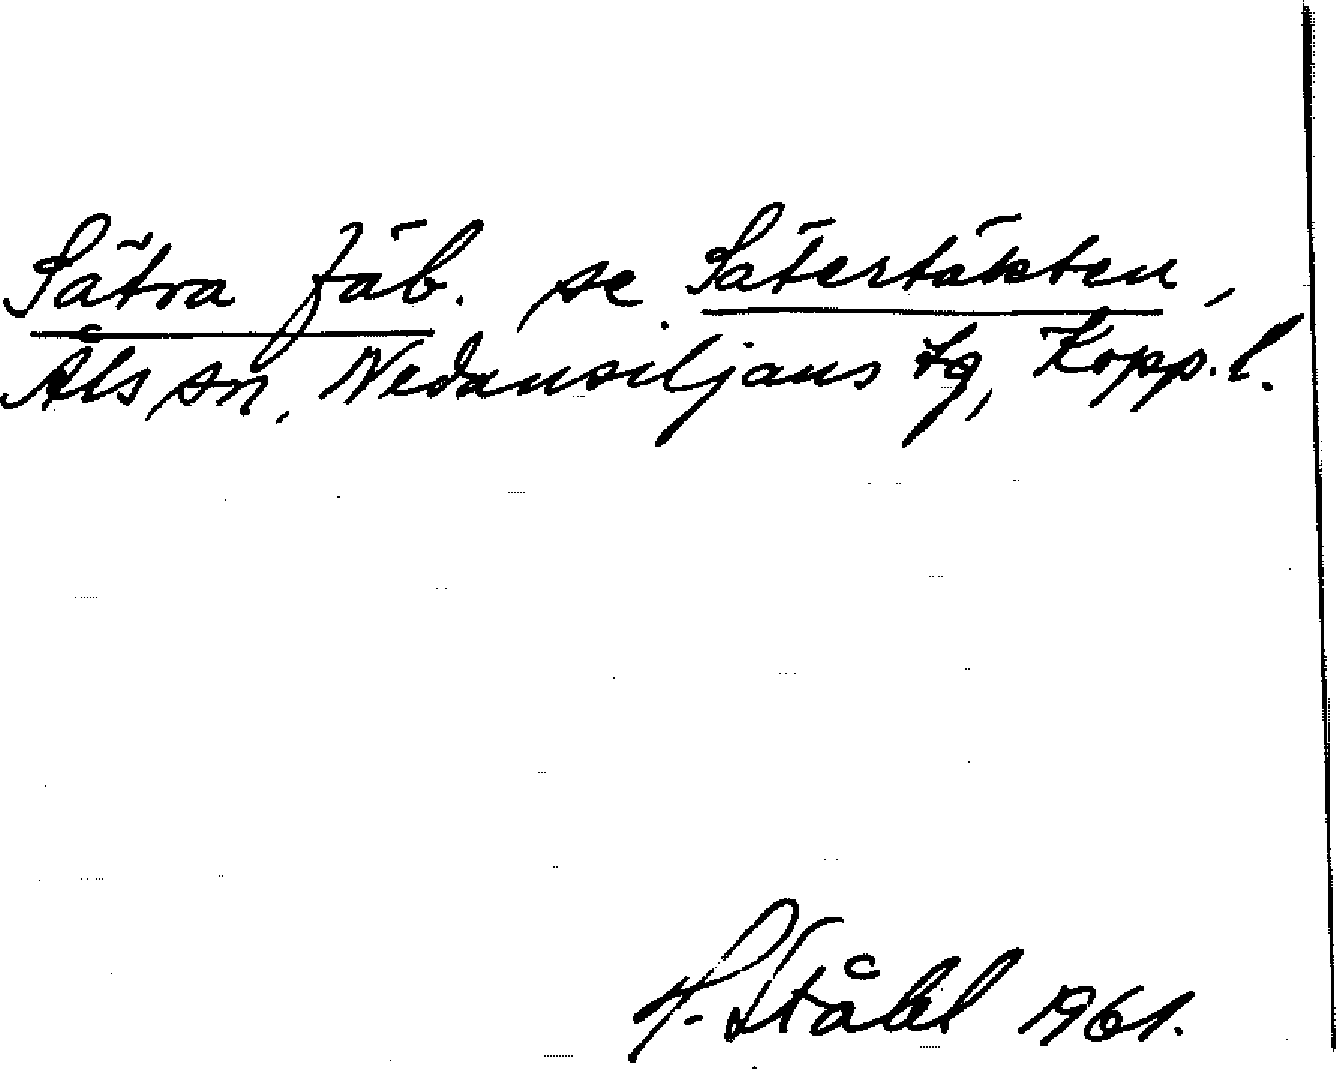 Sätra fäb. se Sätertäkten,
Åls sn, Nedansiljans tg, Kopp. l.
H. Ståhl 1961.